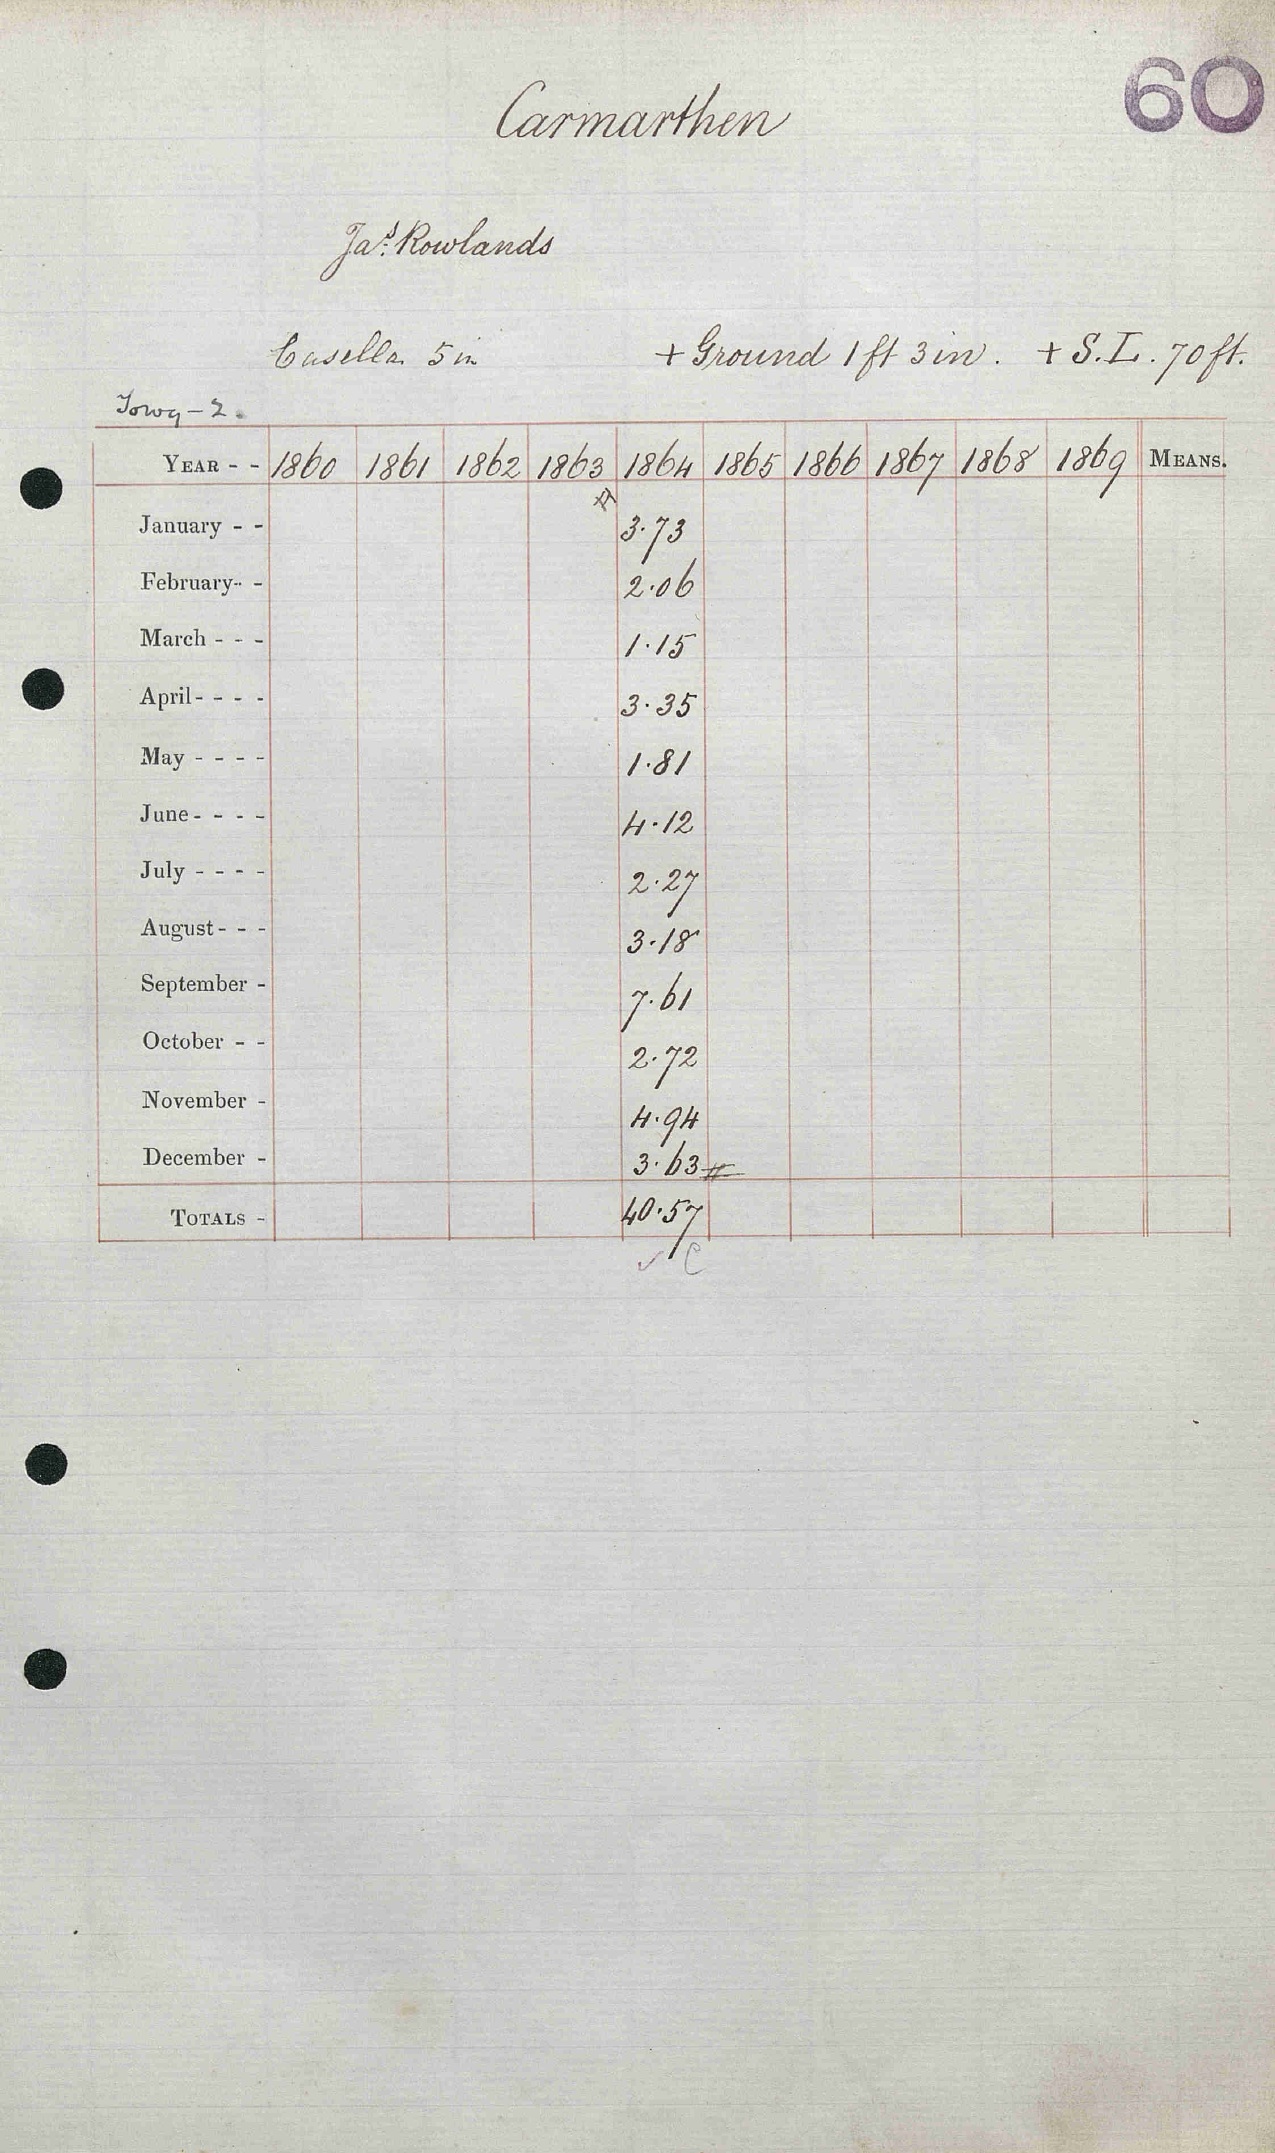 60
Carmarthen
Jas. Rowlands
Casella 5 in + Ground 1 ft 3 in. + S.L. 70 ft.
Towy - 2.
YEAR - - 1860 1861 1862 1863 1864 1865 1866 1867 1868 1869 MEANS.
January - - 3.73
February - - 2.06
March - - - 1.15
April - - - - 3.35
May - - - - 1.81
June - - - - 4.12
July - - - - 2.27
August - - - 3.18
September - 7.61
October - - 2.72
November - 4.94
December - 3.63
TOTALS - 40.57
✓ C